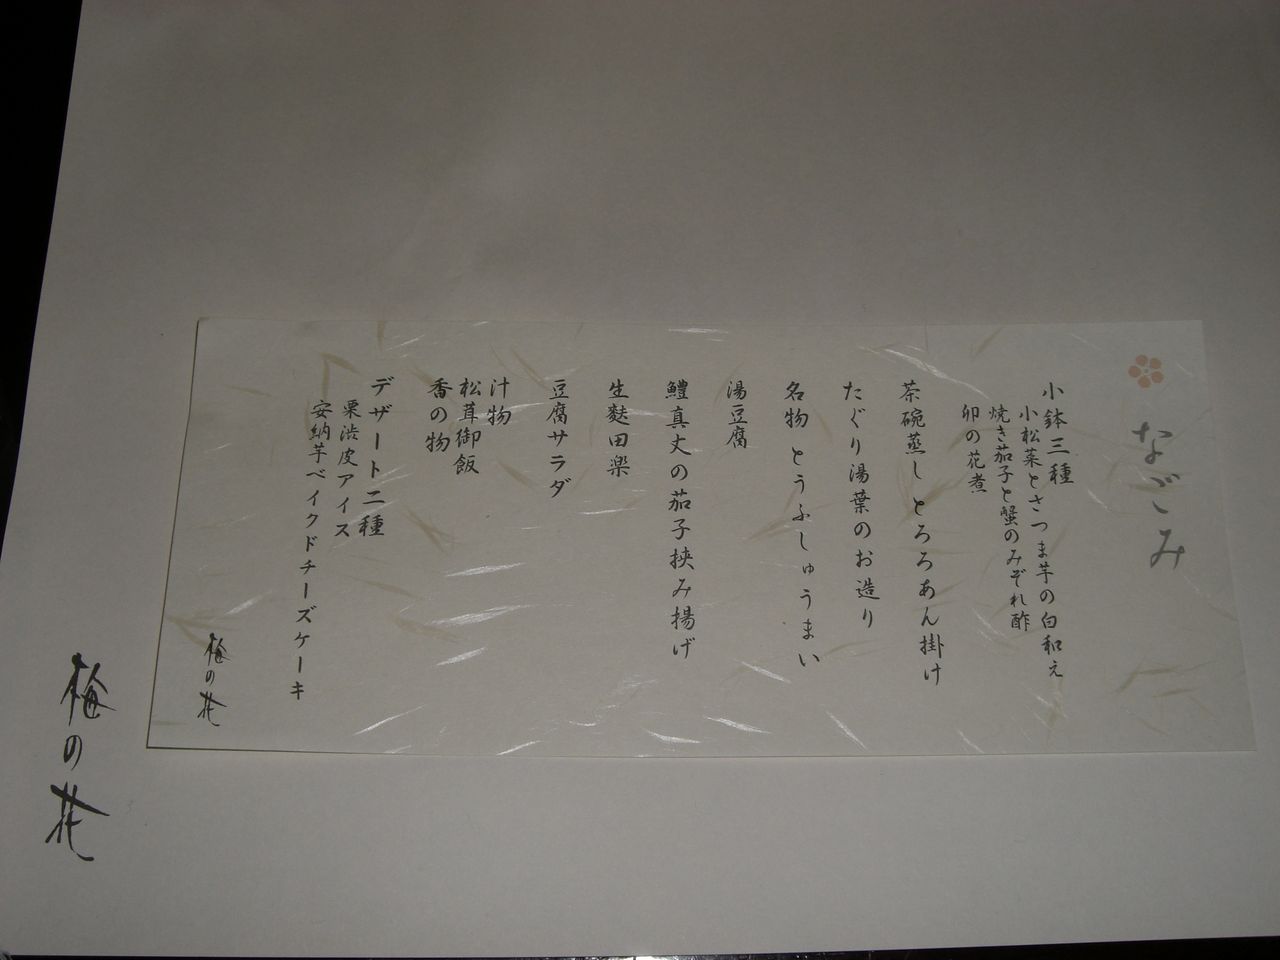 なごみ
小鉢三種
小松菜とさつま芋の白和え
焼き茄子と蟹のみぞれ酢
卯の花煮
茶碗蒸し とろろあん掛け
たぐり湯葉のお造り
名物 とうふしゅうまい
湯豆腐
鱧真丈の茄子挟み揚げ
生麩田楽
豆腐サラダ
汁物
松茸御飯
香の物
デザート二種
栗渋皮アイス
安納芋ベイクドチーズケーキ
梅の花
梅の花